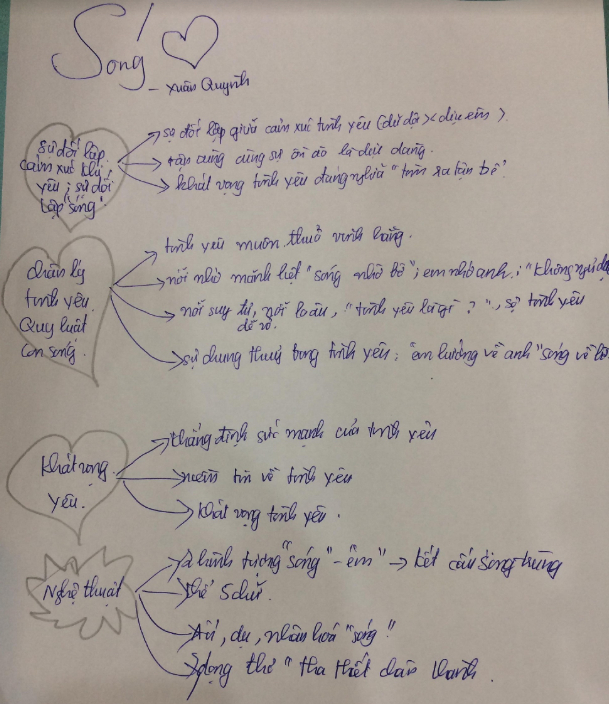 Sóng
- Xuân Quỳnh
sự đối lập
cảm xúc khi
yêu; sự đối
lập "sóng"
sự đối lập giữa cảm xúc tình yêu (dữ dội >< dịu êm).
tận cùng cùng sự ồn ào là dịu dàng.
khát vọng tình yêu đang nghĩa "tìm ra tận bể"
chân lý
tình yêu
Quy luật
con sóng.
tình yêu muôn thuở vĩnh hằng.
nỗi nhớ mãnh liệt "sóng nhớ bờ"; em nhớ anh; "không ngủ được
nỗi suy tư, nỗi lo âu, "tình yêu là gì?", sợ tình yêu
dễ vỡ.
sự chung thuỷ trong tình yêu; em hướng về anh "sóng về bờ
Khát vọng
yêu.
khẳng định sức mạnh của tình yêu
niềm tin về tình yêu
khát vọng tình yêu.
Nghệ thuật
2 hình tượng "sóng" - "em" → kết cấu song trùng
thể 5 chữ.
Ẩn, dụ, nhân hoá "sóng"
giọng thơ "tha thiết chân thành.